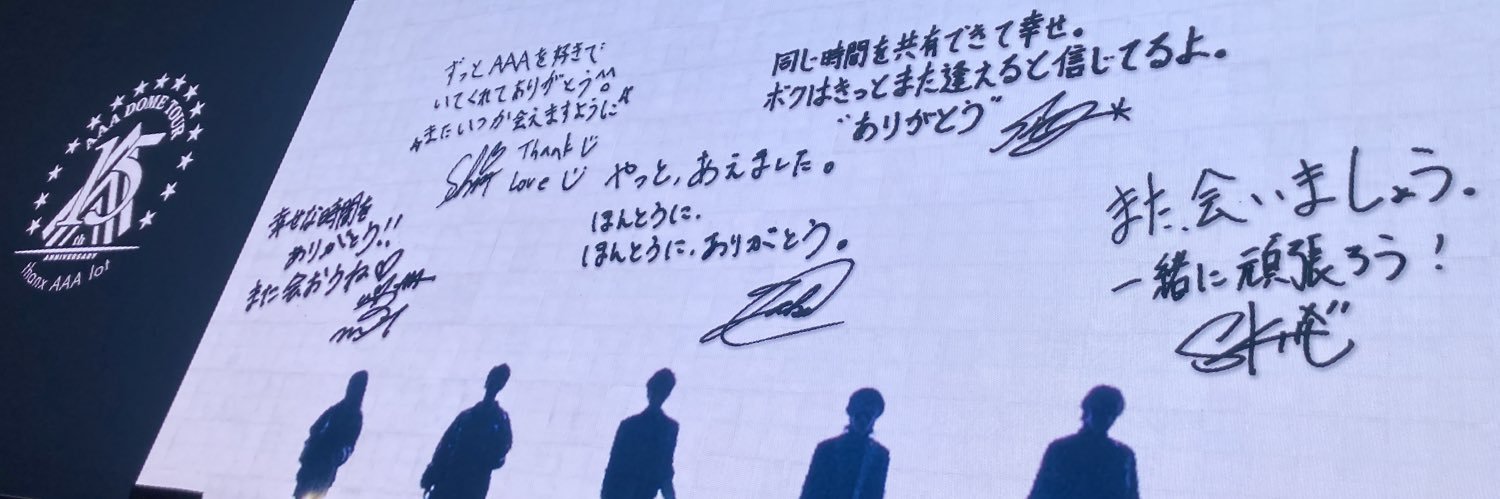 AAA DOME TOUR
15
th
ANNIVERSARY
thanx AAA lot
ずっとAAAを好きで
いてくれてありがとう^^。
"またいつか会えますように"
Thank
Love
同じ時間を共有できて幸せ。
ボクはきっとまた逢えると信じてるよ。
"ありがとう"
幸せな時間を
ありがとう!!
また会おうね♡
やっと、あえました。
ほんとうに、
ほんとうに、ありがとう。
また、会いましょう。
一緒に頑張ろう!